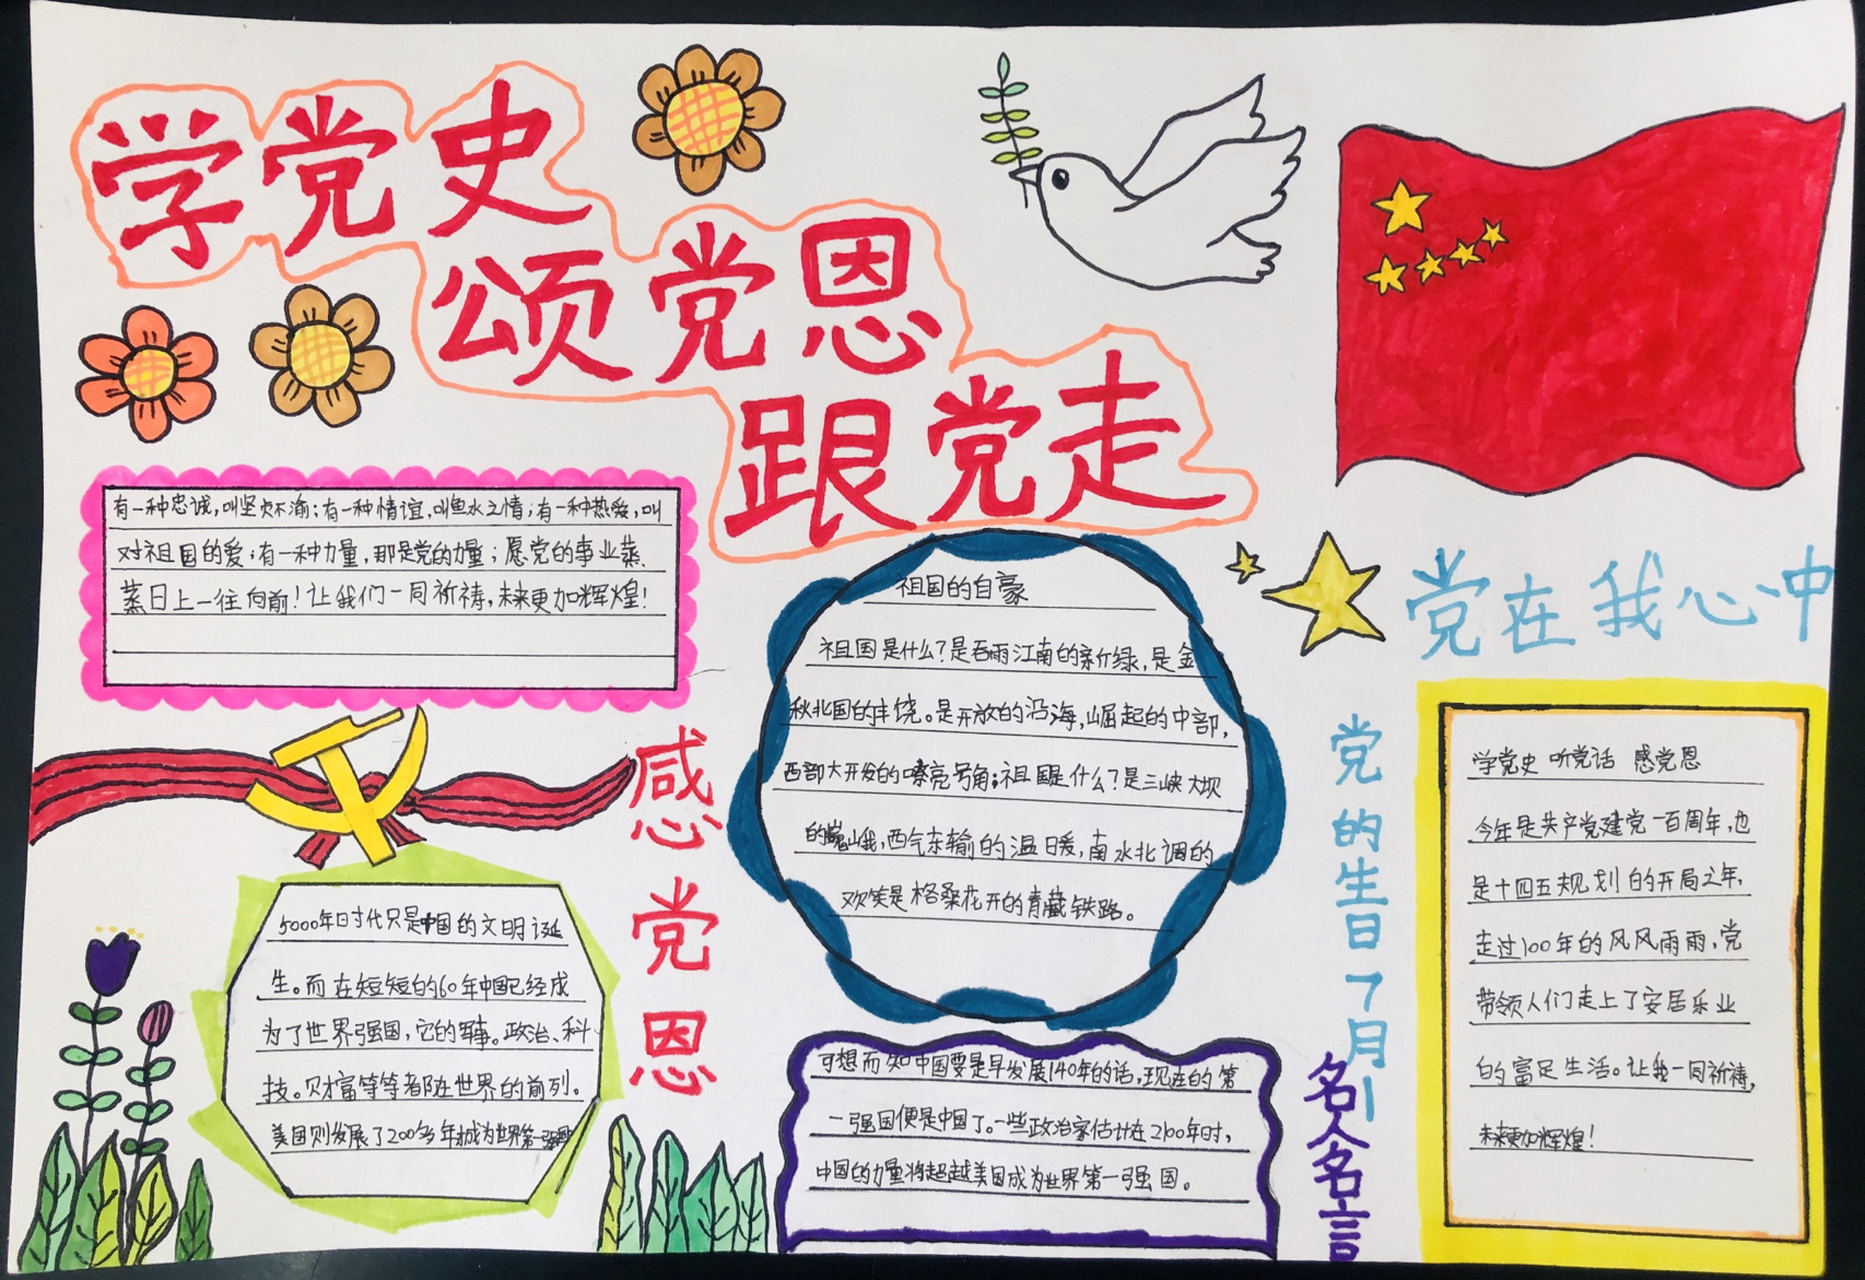 学党史
颂党恩
跟党走
有一种忠诚,叫坚贞不渝;有一种情谊,叫鱼水之情;有一种热爱,叫
对祖国的爱;有一种力量,那是党的力量;愿党的事业蒸
蒸日上一往向前!让我们一同祈祷,未来更加辉煌!
感党恩
5000年时代只是中国的文明诞
生。而在短短的60年中国已经成
为了世界强国,它的军事。政治、科
技。财富等等都在世界的前列。
美国则发展了200多年才成为世界第一强国
祖国的自豪
祖国是什么?是吞雨江南的新绿,是金
秋北国的丰饶。是开放的沿海,崛起的中部,
西部大开发的嘹亮号角;祖国是什么?是三峡大坝
的巍峨,西气东输的温暖,南水北调的
欢笑是格桑花开的青藏铁路。
可想而知中国要是早发展140年的话,现在的第
一强国便是中国了。一些政治家估计在2100年时,
中国的力量将超越美国成为世界第一强国。
党在我心中
党的生日7月1
名人名言
学党史 听党话 感党恩
今年是共产党建党一百周年,也
是十四五规划的开局之年,
走过100年的风风雨雨,党
带领人们走上了安居乐业
的富足生活。让我一同祈祷,
未来更加辉煌!